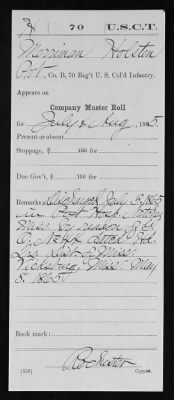 70 U.S.C.T.
Merriman Holsten
Pvt., Co. B, 70 Reg't U. S. Col'd Infantry.
Appears on
Company Muster Roll
for July & Aug, 1865.
Present or absent
Stoppage, $ 100 for
Due Gov't, $ 100 for
Remarks: Discharged July 3, 1865
in Post Hosp Natchez
Miss by reason of
Dept of Miss
Vicksburg, Miss. May
8. 1865
Book mark:
(358) Copyist.